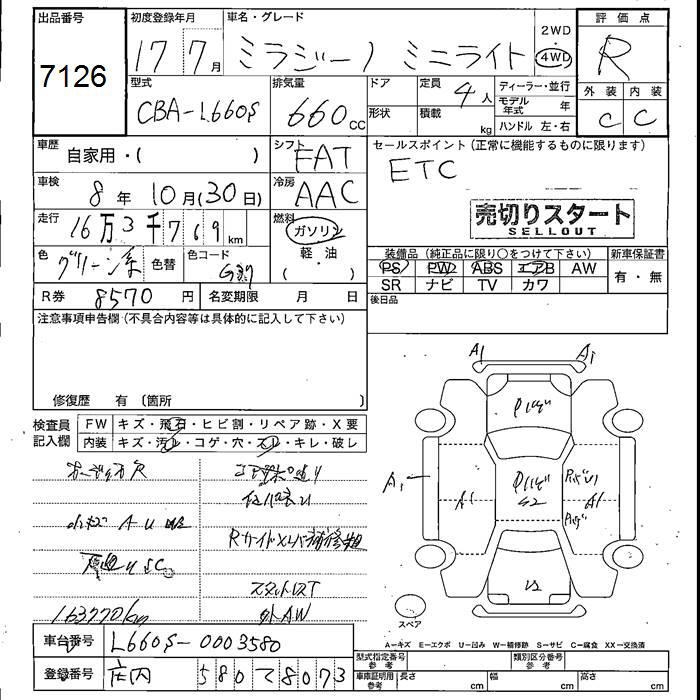 出品番号
7126
初度登録年月
17 7月
車名・グレード
ミラジーノ ミニライト
2WD
4WD
評価点
R
型式
CBA-L660S
排気量
660cc
ドア
形状
定員
4人
積載
kg
ディーラー・並行
モデル年式 年
ハンドル 左・右
外装 内装
C C
車歴
自家用・( )
シフト
FAT
セールスポイント(正常に機能するものに限ります)
ETC
車検
8年10月(30日)
冷房
AAC
走行
16万3千769km
燃料
ガソリン
軽・油
( )
売切りスタート
SELLOUT
色
グリーン系
色替
色コード
装備品(純正品に限り○をつけて下さい)
新車保証書
PS PW ABS エアB AW
SR ナビ TV カワ
有・無
R券 8570円
名変期限 月 日
後日品
注意事項申告欄(不具合内容等は具体的に記入して下さい)
修復歴 有〔箇所 〕
検査員記入欄
FW キズ・飛石・ヒビ割・リペア跡・X要
内装 キズ・汚レ・コゲ・穴・スレ・キレ・破レ
A1 A1
A1 A1 A1
スタットレスT
外AW
163770km
スペア
A=キズ E=エクボ U=凹み W=補修跡 S=サビ C=腐食 XX=交換済
車台番号 L660S-0003580
登録番号 庄内 580 て 8073
型式指定番号 参考
類別区分番号 参考
車庫証明用 参考
長さ cm 幅 cm 高さ cm